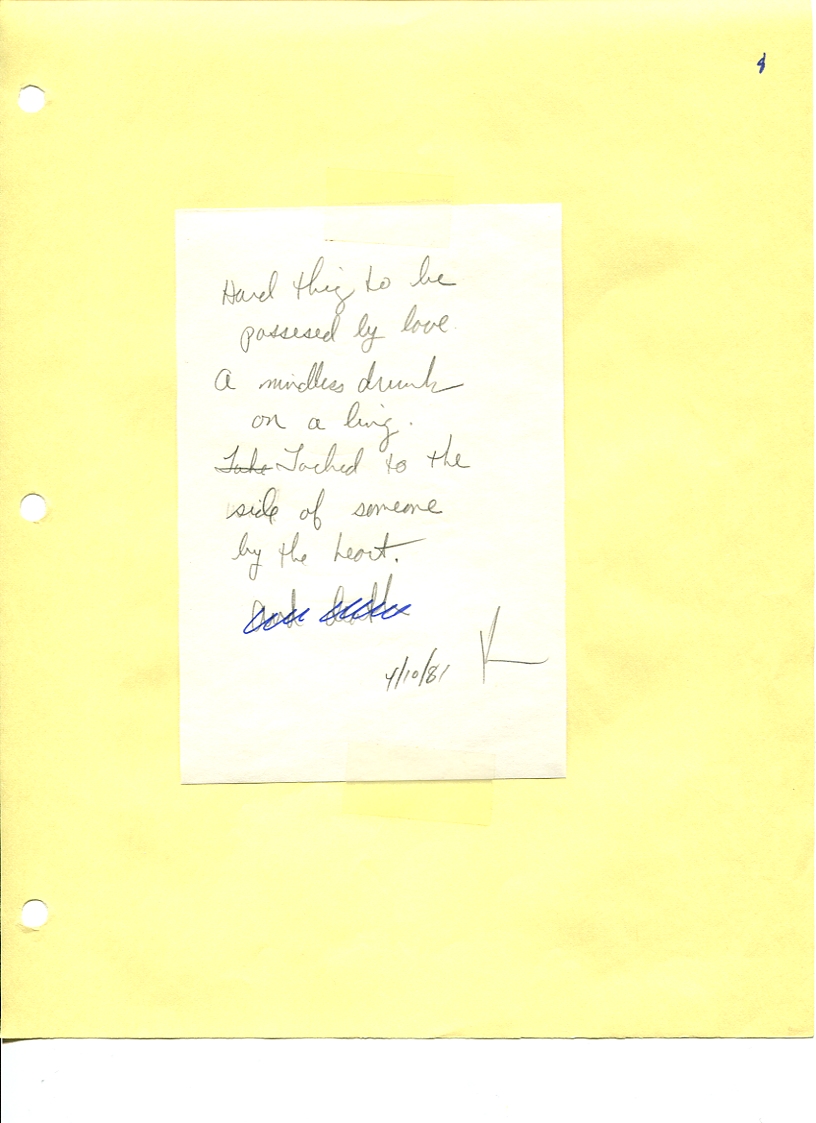 Hard thig to be
possesed by love.
A mindless drunk
on a ling.
Take Tacked to the
side of someone
by the heart.
4/10/81